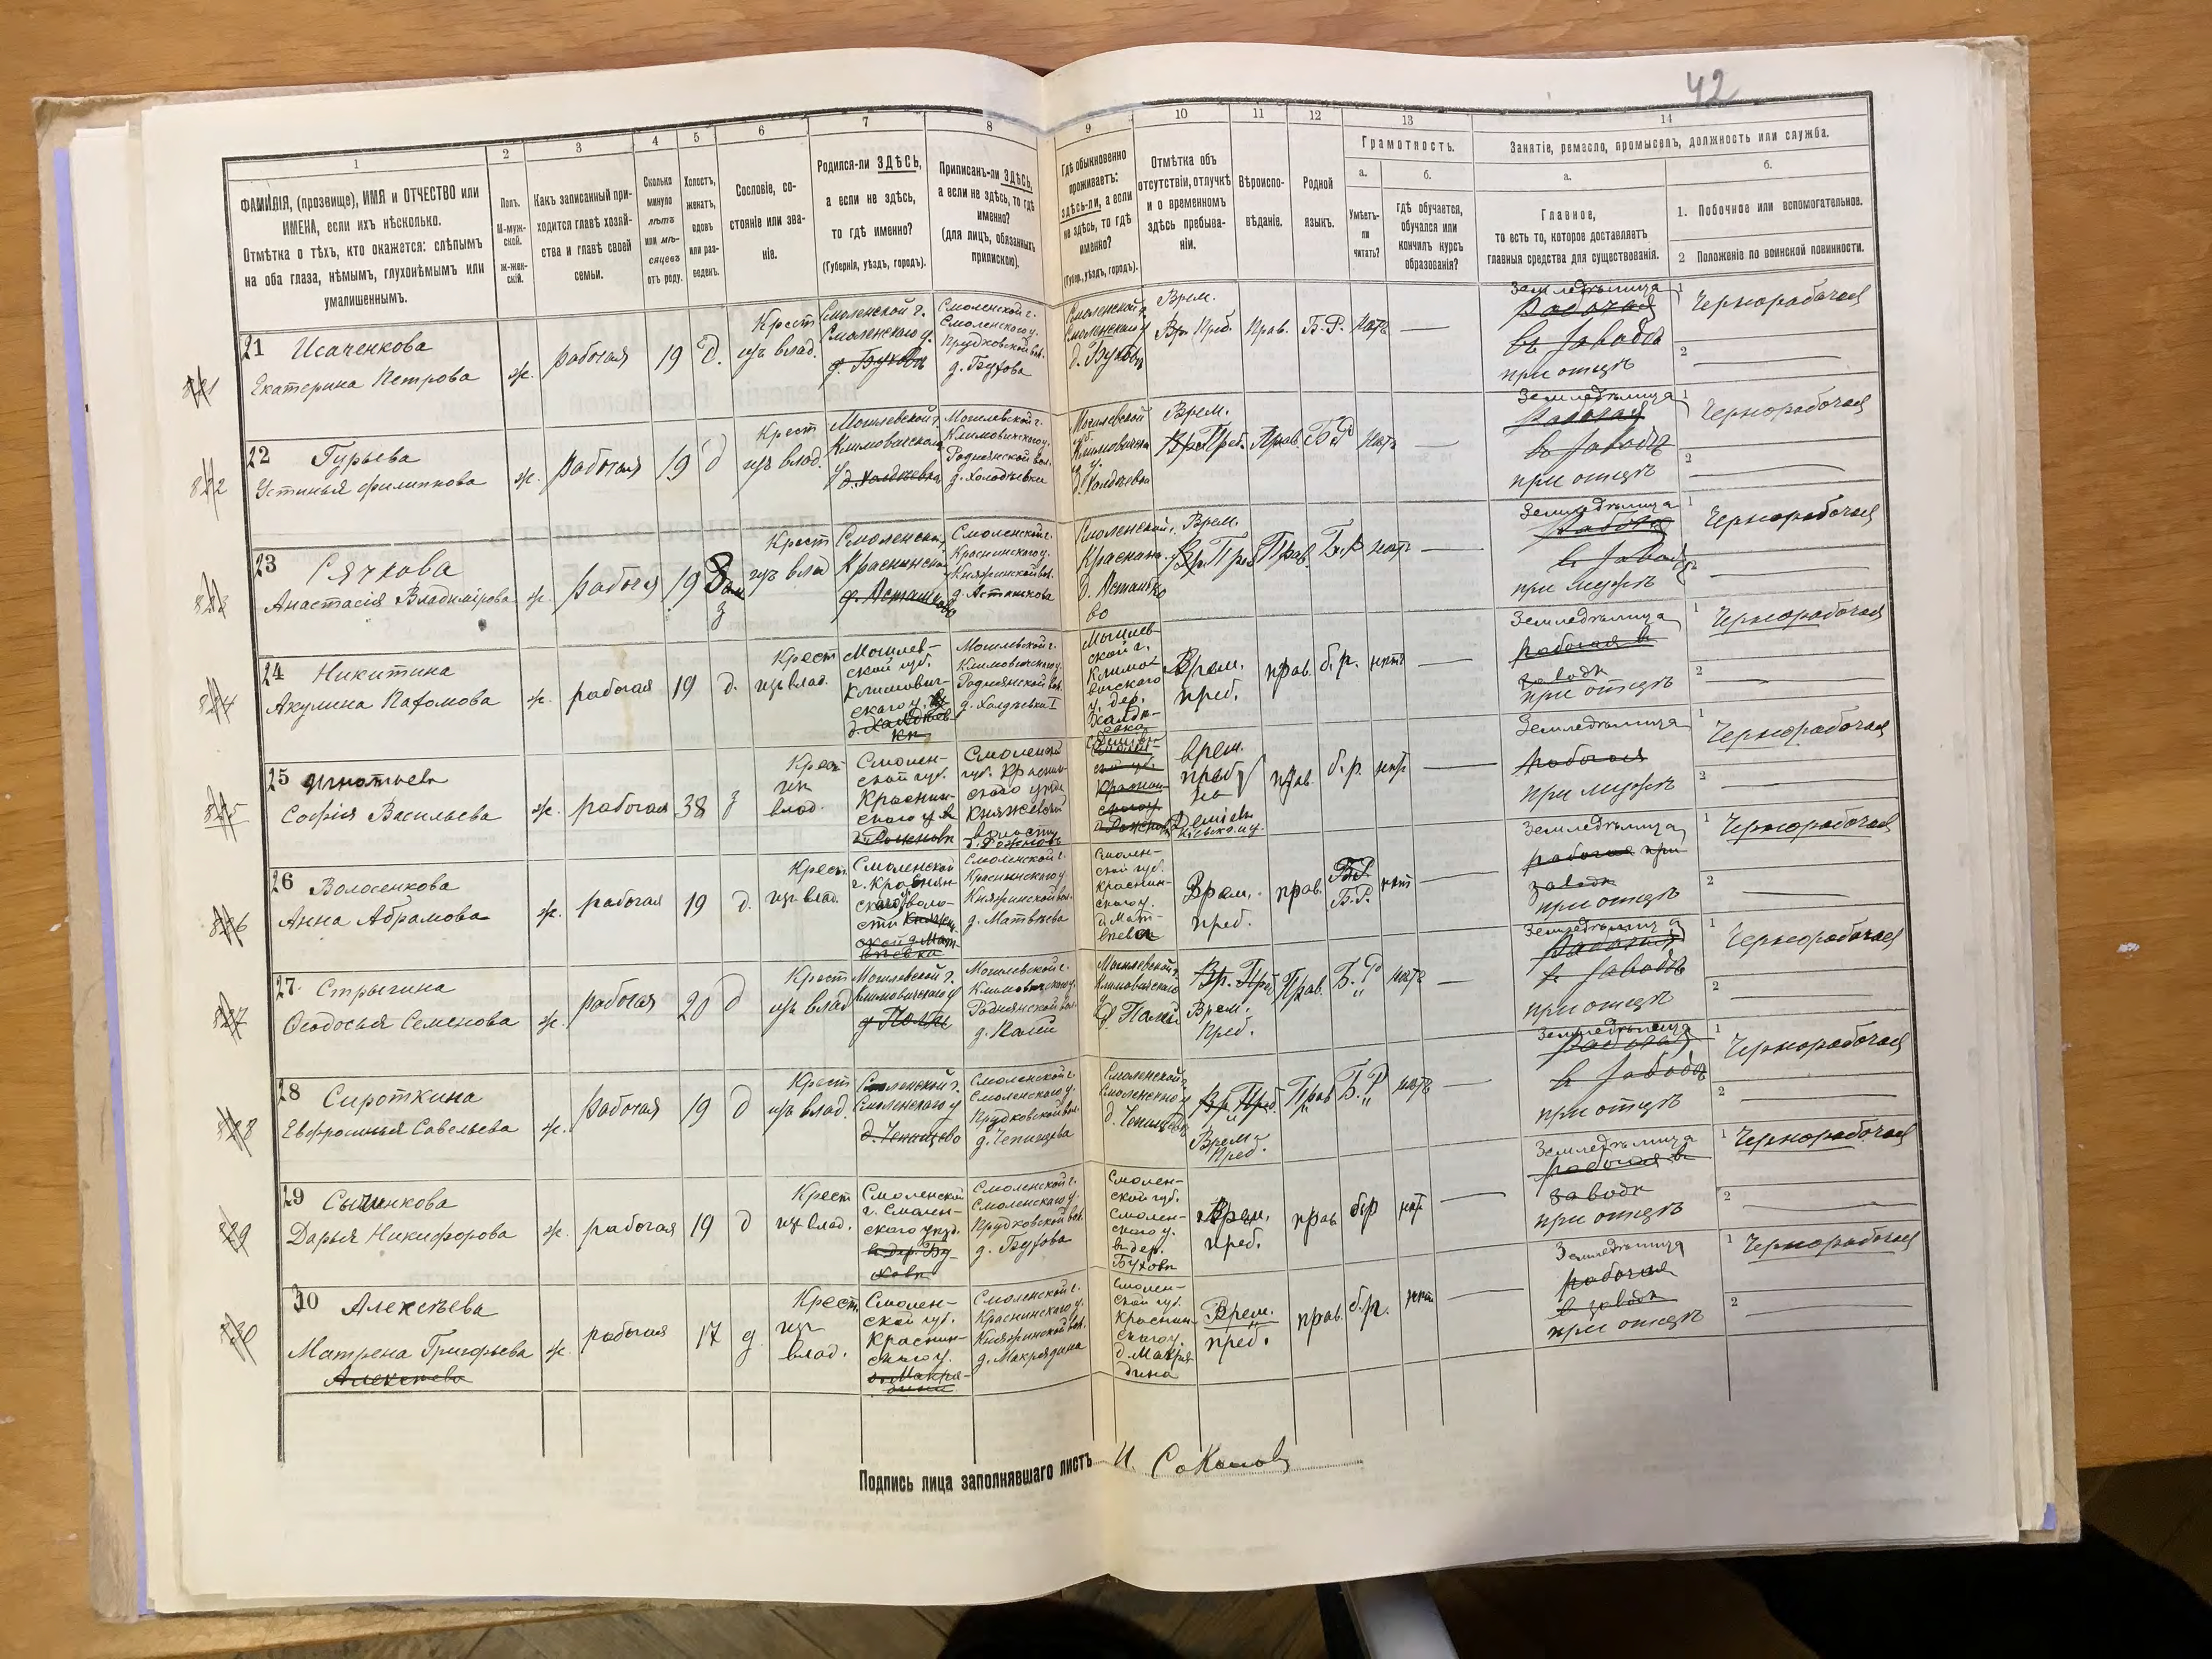 42
1
2
3
4
5
6
7
8
9
10
11
12
13
14
ФАМИЛІЯ, (прозвище), ИМЯ и ОТЧЕСТВО или
ИМЕНА, если ихъ нѣсколько.
Отмѣтка о тѣхъ, кто окажется: слѣпымъ
на оба глаза, нѣмымъ, глухонѣмымъ или
умалишеннымъ.
Полъ.
М-муж-
ской.
Ж-жен-
скій.
Какъ записанный при-
ходится главѣ хозяй-
ства и главѣ своей
семьи.
Сколько
минуло
лѣтъ
или мѣ-
сяцевъ
отъ роду.
Холостъ,
женатъ,
вдовъ
или раз-
веденъ.
Сословіе, со-
стояніе или зва-
ніе.
Родился-ли ЗДѢСЬ,
а если не здѣсь,
то гдѣ именно?
(Губернія, уѣздъ, городъ).
Приписанъ-ли ЗДѢСЬ,
а если не здѣсь, то гдѣ
именно?
(для лицъ, обязанныхъ
припискою).
Гдѣ обыкновенно
проживаетъ:
здѣсь-ли, а если
не здѣсь, то гдѣ
именно?
(Губер., уѣздъ, городъ).
Отмѣтка объ
отсутствіи, отлучкѣ
и о временномъ
здѣсь пребыва-
ніи.
Вѣроиспо-
вѣданіе.
Родной
языкъ.
Грамотность.
а.
Умѣетъ-
ли
читать?
б.
гдѣ обучается,
обучался или
кончилъ курсъ
образованія?
Занятіе, ремесло, промыселъ, должность или служба.
а.
Главное,
то есть то, которое доставляетъ
главныя средства для существованія.
б.
1. Побочное или вспомогательное.
2 Положеніе по воинской повинности.
821
21 Исаченкова
Екатерина Петрова
ж.
рабочая
19
д.
Крест
изъ влад.
Смоленской г.
Смоленского у.
д. Буховъ
Смоленской г.
Смоленского у.
Прудковской вол.
д. Бухова
Смоленской г.
Смоленского у
д. Буховъ
Врем.
Вр. Преб.
Прав.
Б.-Р.
нѣтъ
Земледѣлица
Рабочая
въ заводѣ
при отцѣ
1 Чернорабочая
2
822
22 Гурьева
Устинья Филиппова
ж.
Рабочая
19
д
Крест
изъ влад.
Могилевской г.
Климовическаго
у
д. Холдѣевка
Могилевской г.
Климовичскаго у.
Роднянской вол.
д. Холодѣевки
Могилевской
губ.
Климовическ
у.
д. Холдѣевка
Врем.
Вре Преб.
Прав.
Б-Р
нѣтъ
Земледѣлица
Рабочая
въ заводѣ
при отцѣ
1 Чернорабочая
2
823
23 Сячкова
Анастасія Владимірова
ж.
рабочая
19
Зам
з
Крест
изъ влад
Смоленской
Краснинскаго
д. Асташкова
Смоленской г.
Краснинскаго у.
Княжинской вол.
д. Асташкова
Смоленской г.
Краснин.
д. Асташко
во
Врем.
Вр. Преб
Прав.
Б.Р
нѣтъ
Земледѣлица
Рабочая
въ заводѣ
при мужѣ
1 Чернорабочая
2
824
24 Никитина
Акулина Пафомова
ж.
рабочая
19
д.
Крест
изъ влад.
Могилев-
ской губ.
Климович-
скаго у. в
д. Халдѣев
кѣ
Могилевской г.
Климовичскаго у.
Роднянской вол.
д. Холдѣевки I
Могилев-
ской г.
Климо-
вичскаго
у. дер.
Халдѣ-
евка
Врем.
преб.
прав.
б.р.
нѣтъ
Земледѣлица
рабочая въ
заводѣ
при отцѣ
1 Чернорабочая
2
825
25 Игнатьева
Софія Васильева
ж.
рабочая
38
з
Крест
изъ
влад.
Смолен-
ской губ.
Краснин-
скаго у. в
Смоленской
губ. Краснин-
скаго уѣзда
Княжевской
волости
врем.
преб
на
прав.
б.р.
нѣт
Земледѣлица
рабочая
при мужѣ
1 Чернорабочая
2
826
26 Волосенкова
Анна Абрамова
ж.
рабочая
19
д.
Крест.
изъ влад.
Смоленской
г. Краснин-
скаго воло-
сти Княжин
ской д. Мат-
вѣевка
Смоленской г.
Краснинскаго у.
Княжинской вол.
д. Матвѣева
Смолен-
ской губ.
Краснин-
скаго у.
д. Мат-
вѣева
Врем.
преб.
прав.
Б.Р.
Б.Р.
нѣт
Земледѣлица
рабочая при
заводѣ
при отцѣ
1 Чернорабочая
2
827
27 Стрыгина
Ѳеодосья Семенова
ж.
рабочая
20
д
Крест
изъ влад
Могилевской г.
Климовичскаго у
Могилевской г.
Климовичскаго у.
Роднянской вол.
Могилевской г.
Климовичскаго
у
Вр. Преб
Врем.
Преб.
Прав.
Б.Р
нѣтъ
Земледѣлица
Рабочая
въ заводѣ
при отцѣ
1 Чернорабочая
2
828
28 Сироткина
Евфросинья Савельева
ж.
Рабочая
19
д
Крест
изъ влад.
Смоленской г.
Смоленскаго у
д. Чепищево
Смоленской г.
Смоленскаго у.
Прудковской вол.
д. Чепищева
Смоленской г.
Смоленскаго у
д. Чепищевъ
Вр. Преб.
Врем.
Преб.
Прав
Б.Р
нѣтъ
Земледѣлица
Рабочая
въ заводѣ
при отцѣ
1 Чернорабочая
2
829
29
Дарья Никифорова
ж.
рабочая
19
д
Крест
изъ влад.
Смоленской
г. Смолен-
скаго уѣзд.
в дер. Бу-
ховѣ
Смоленской г.
Смоленскаго у.
Прудковской вол.
д. Бухова
Смолен-
ской губ.
Смолен-
скаго у.
в дер.
Буховѣ
Врем.
преб.
прав.
б.р
нѣт
Земледѣлица
рабочая в
заводѣ
при отцѣ
1 Чернорабочая
2
830
30 Алексѣева
Матрена Григорьева
Алексѣева
ж.
рабочая
17
д
Крест.
изъ
влад.
Смолен-
ской губ.
Краснин-
скаго у.
Смоленской г.
Краснинскаго у.
Княжинской вол.
д. Макрядина
Смолен-
ской губ.
Краснин-
скаго у.
д. Макря-
дина
Врем.
преб.
прав.
б.р.
нѣт
Земледѣлица
рабочая
в заводѣ
при отцѣ
1 Чернорабочая
2
Подпись лица заполнявшаго листъ И Соколов